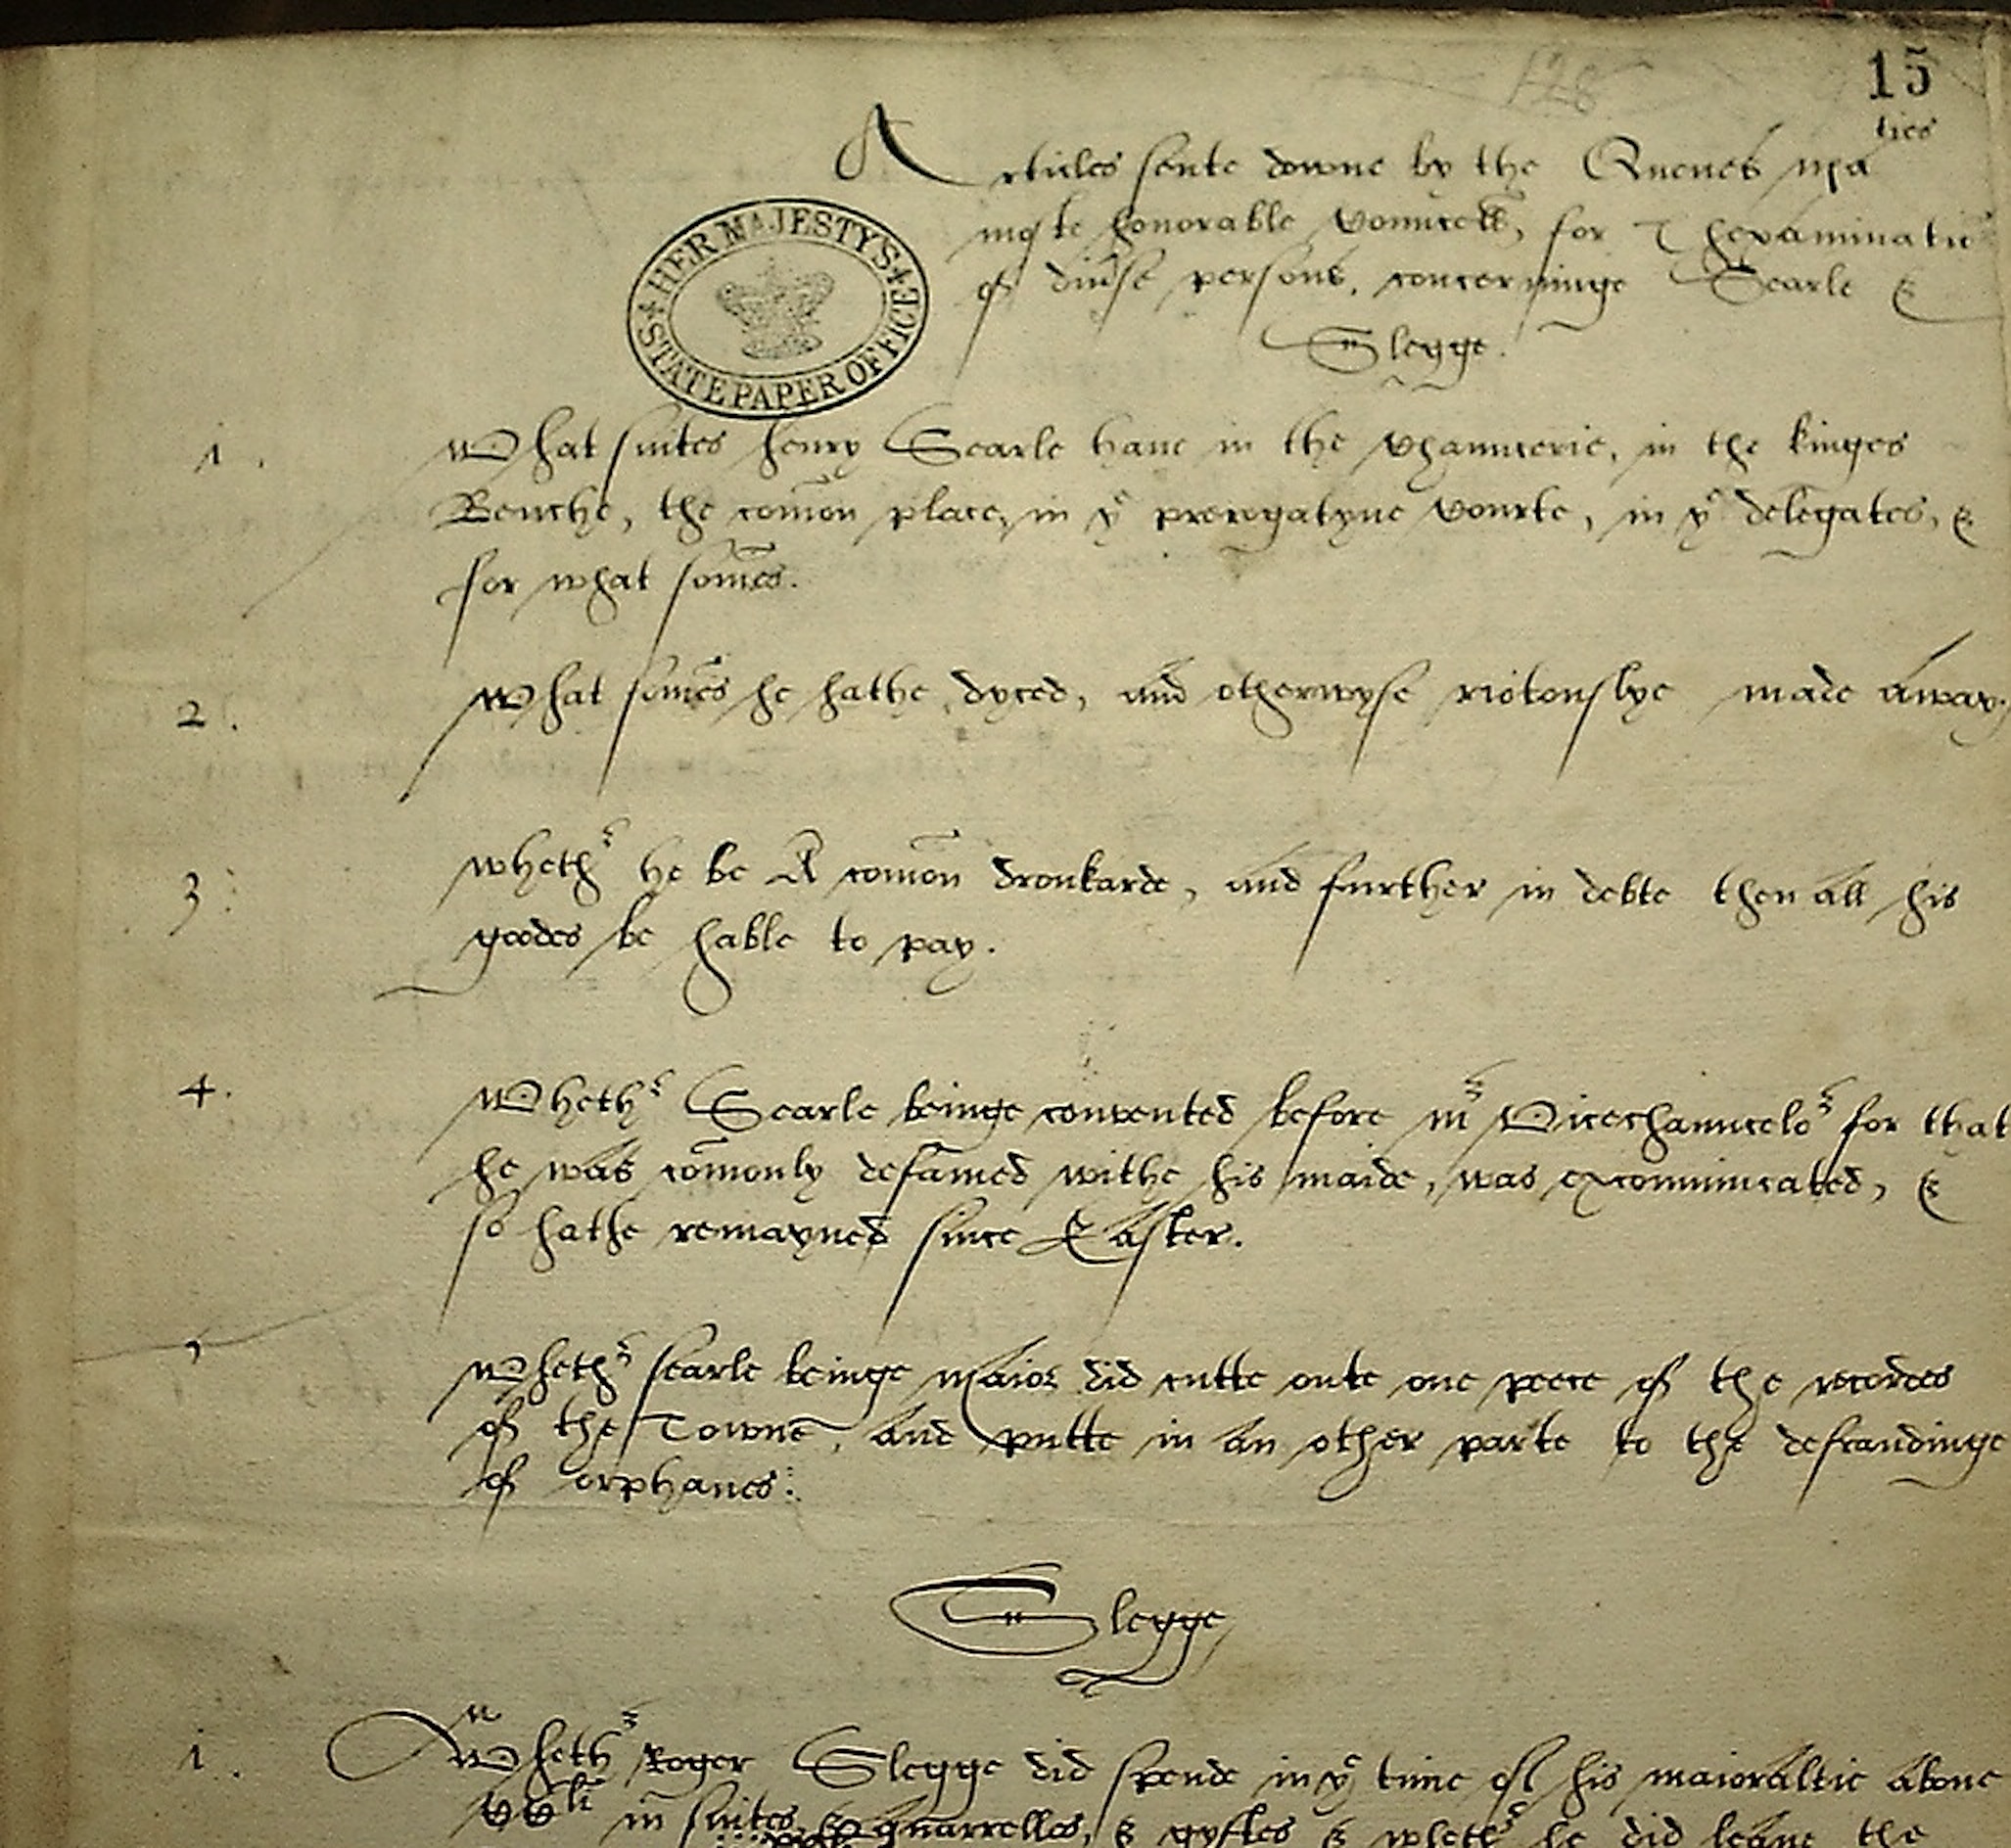 128
15
Articles sente downe by the Quenes ma ties
moste honorable Counsell, for Thexaminatio
of diu'se persons, concerninge Searle &
Slegge.
HER MAJESTY'S
STATE PAPER OFFICE
1. What suites henry Searle haue in the Chauncerie, in the kinges
Benche, the comon place, in ye prerogatyue Courte, in ye delegates, &
for what somes.
2. What somes he hathe dyced, and otherwyse riotouslye made away.
3. wheth r he be A comon dronkarde, and further in debte then all his
goodes be hable to pay.
4. Wheth r Searle beinge convented before mr Vicechauncelor for that
he was comonly defamed withe his maide, was excommunicated, &
so hathe remayned since Easter.
5 Wheth r searle beinge maior did cutte oute one peece of the recordes
of the Towne, and putte in an other parte to the defraudinge
of orphanes:
Slegge
1. Wheth r Roger Slegge did spende in ye time of his maioraltie aboue
li in suites & quarrelles, & gyftes & wheth r he did leaue the